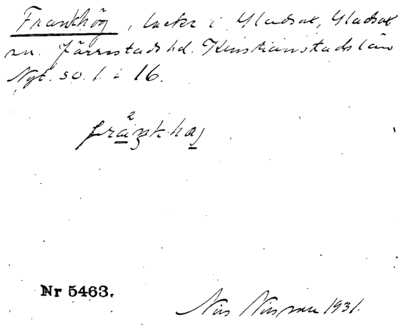 Frankhög, backe i Gladsax, Gladsax
sn. Järrestads hd. Kristianstads län
Nyt. so. l. i 16.
fráŋkhaj
Nr 5463.
Nils Nilsson 1931.